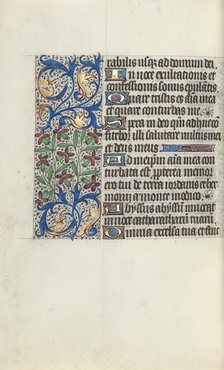 rabilis usq; ad domum dei.
In voce exultationis et
confessionis sonus epulatis.
Quare tristis es aīa mea
et quare conturbas me.
Spera in deo qm̄ adhuc con
fitebor illi salutare vultus mei
et deus meus
Ad meipm aīa mea con
turbata est pp̄terea memor
ero tui de terra iordanis et her
monij a monte modico.
Abyssus abyssū invocat
in voce catharartharū tuarū.
Omnia excelsa tua et fluc